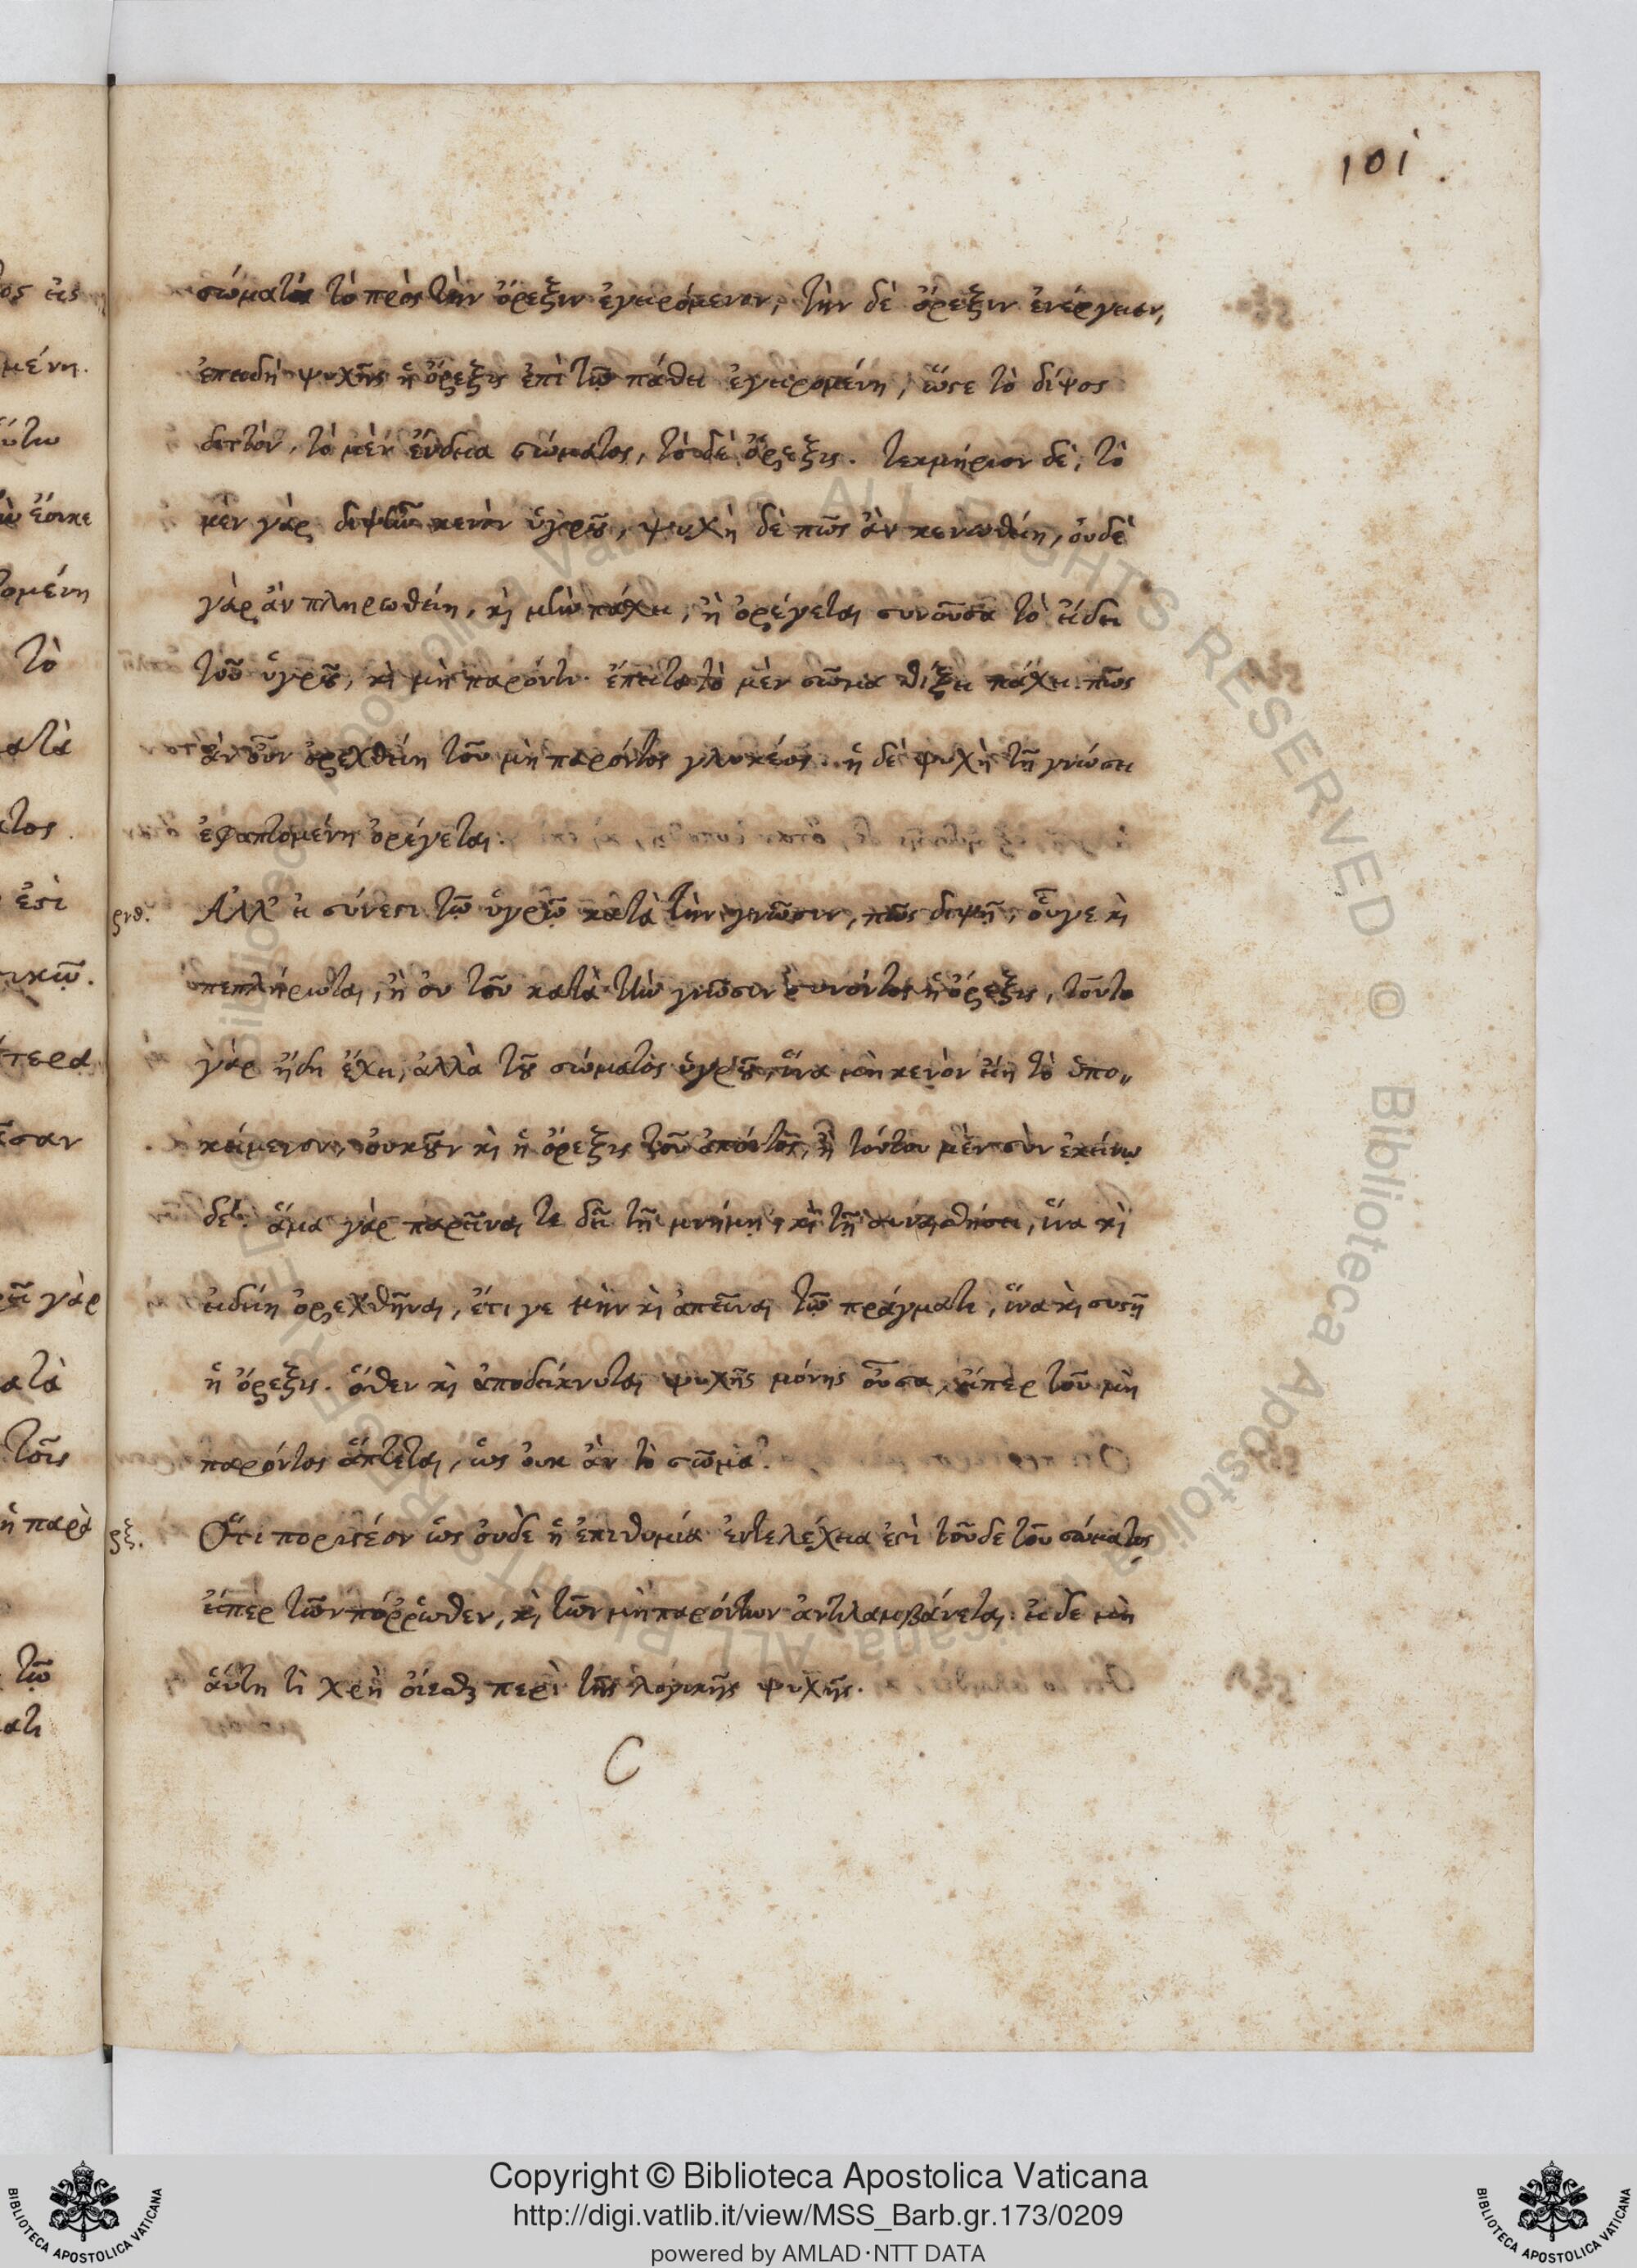 101.
σώματος τὸ πρὸς τὴν ὄρεξιν ἐγειρόμενον, τὴν δὲ ὄρεξιν ἐνέργειαν,
ἐπειδὴ ψυχῆς ἡ ὄρεξις ἐπὶ τῷ πάθει ἐγειρομένη, ὥστε τὸ δίψος
διττὸν, τὸ μὲν ἔνδεια σώματος, τὸ δὲ ὄρεξις. τεκμήριον δὲ, τὸ
μὲν γὰρ διψῶν κενὸν ὑγροῦ, ψυχὴ δὲ πῶς ἂν κενωθείη, οὐδὲ
γὰρ ἂν πληρωθείη, καὶ μὴν πάχει, ἢ ὀρέγεται συνοῦσα τὸ εἴδει
τοῦ ὑγροῦ, καὶ μὴ παρόντι. ἔπειτα τὸ μὲν σῶμα θίξει πάχει. πῶς
ἂν οὖν ὀρεχθείη τοῦ μὴ παρόντος γλυκέος. ἡ δὲ ψυχὴ τῇ γνώσει
ἐφαπτομένη ὀρέγεται.
ρνθ. Ἀλλ' εἰ σύνεστι τῷ ὑγρῷ κατὰ τὴν γνῶσιν, πῶς διψῇ, οὗ γε καὶ
πεπλήρωται, ἢ οὐ τοῦ κατὰ τὴν γνῶσιν συνόντος ἡ ὄρεξις, τοῦτο
γὰρ ἤδη ἔχει, ἀλλὰ τοῦ σώματος ὑγροῦ, ἵνα μὴ κενὸν εἴη τὸ ὑπο„
κείμενον, οὐκοῦν καὶ ἡ ὄρεξις τοῦ ἀπόντος, ἢ τούτου μὲν σὺν ἐκείνῳ
δέ. ἅμα γὰρ παρεῖναι τε δεῖ τῇ μνήμῃ, καὶ τῇ συναισθήσει, ἵνα καὶ
εἰδείη ὀρεχθῆναι, ἔτι γε μὴν καὶ ἀπεῖναι τῷ πράγματι, ἵνα καὶ συστῇ
ἡ ὄρεξις. ὅθεν καὶ ἀποδείκνυται ψυχῆς μόνης οὖσα, εἴπερ τοῦ μὴ
παρόντος ἅπτεται, ὡς οὐκ ἂν τὸ σῶμα.
ρξ. Ὅτι ποριστέον ὡς οὐδὲ ἡ ἐπιθυμία ἐντελέχεια ἐστὶ τοῦδε τοῦ σώματος
εἴπερ τῶν πόῤῥωθεν, καὶ τῶν μὴ παρόντων ἀντιλαμβάνεται. εἰ δὲ μὴ
αὕτη τί χρὴ οἴεσθαι περὶ τῆς λογικῆς ψυχῆς.
C
Copyright © Biblioteca Apostolica Vaticana
http://digi.vatlib.it/view/MSS_Barb.gr.173/0209
powered by AMLAD·NTT DATA
BIBLIOTECA APOSTOLICA VATICANA
BIBLIOTECA APOSTOLICA VATICANA